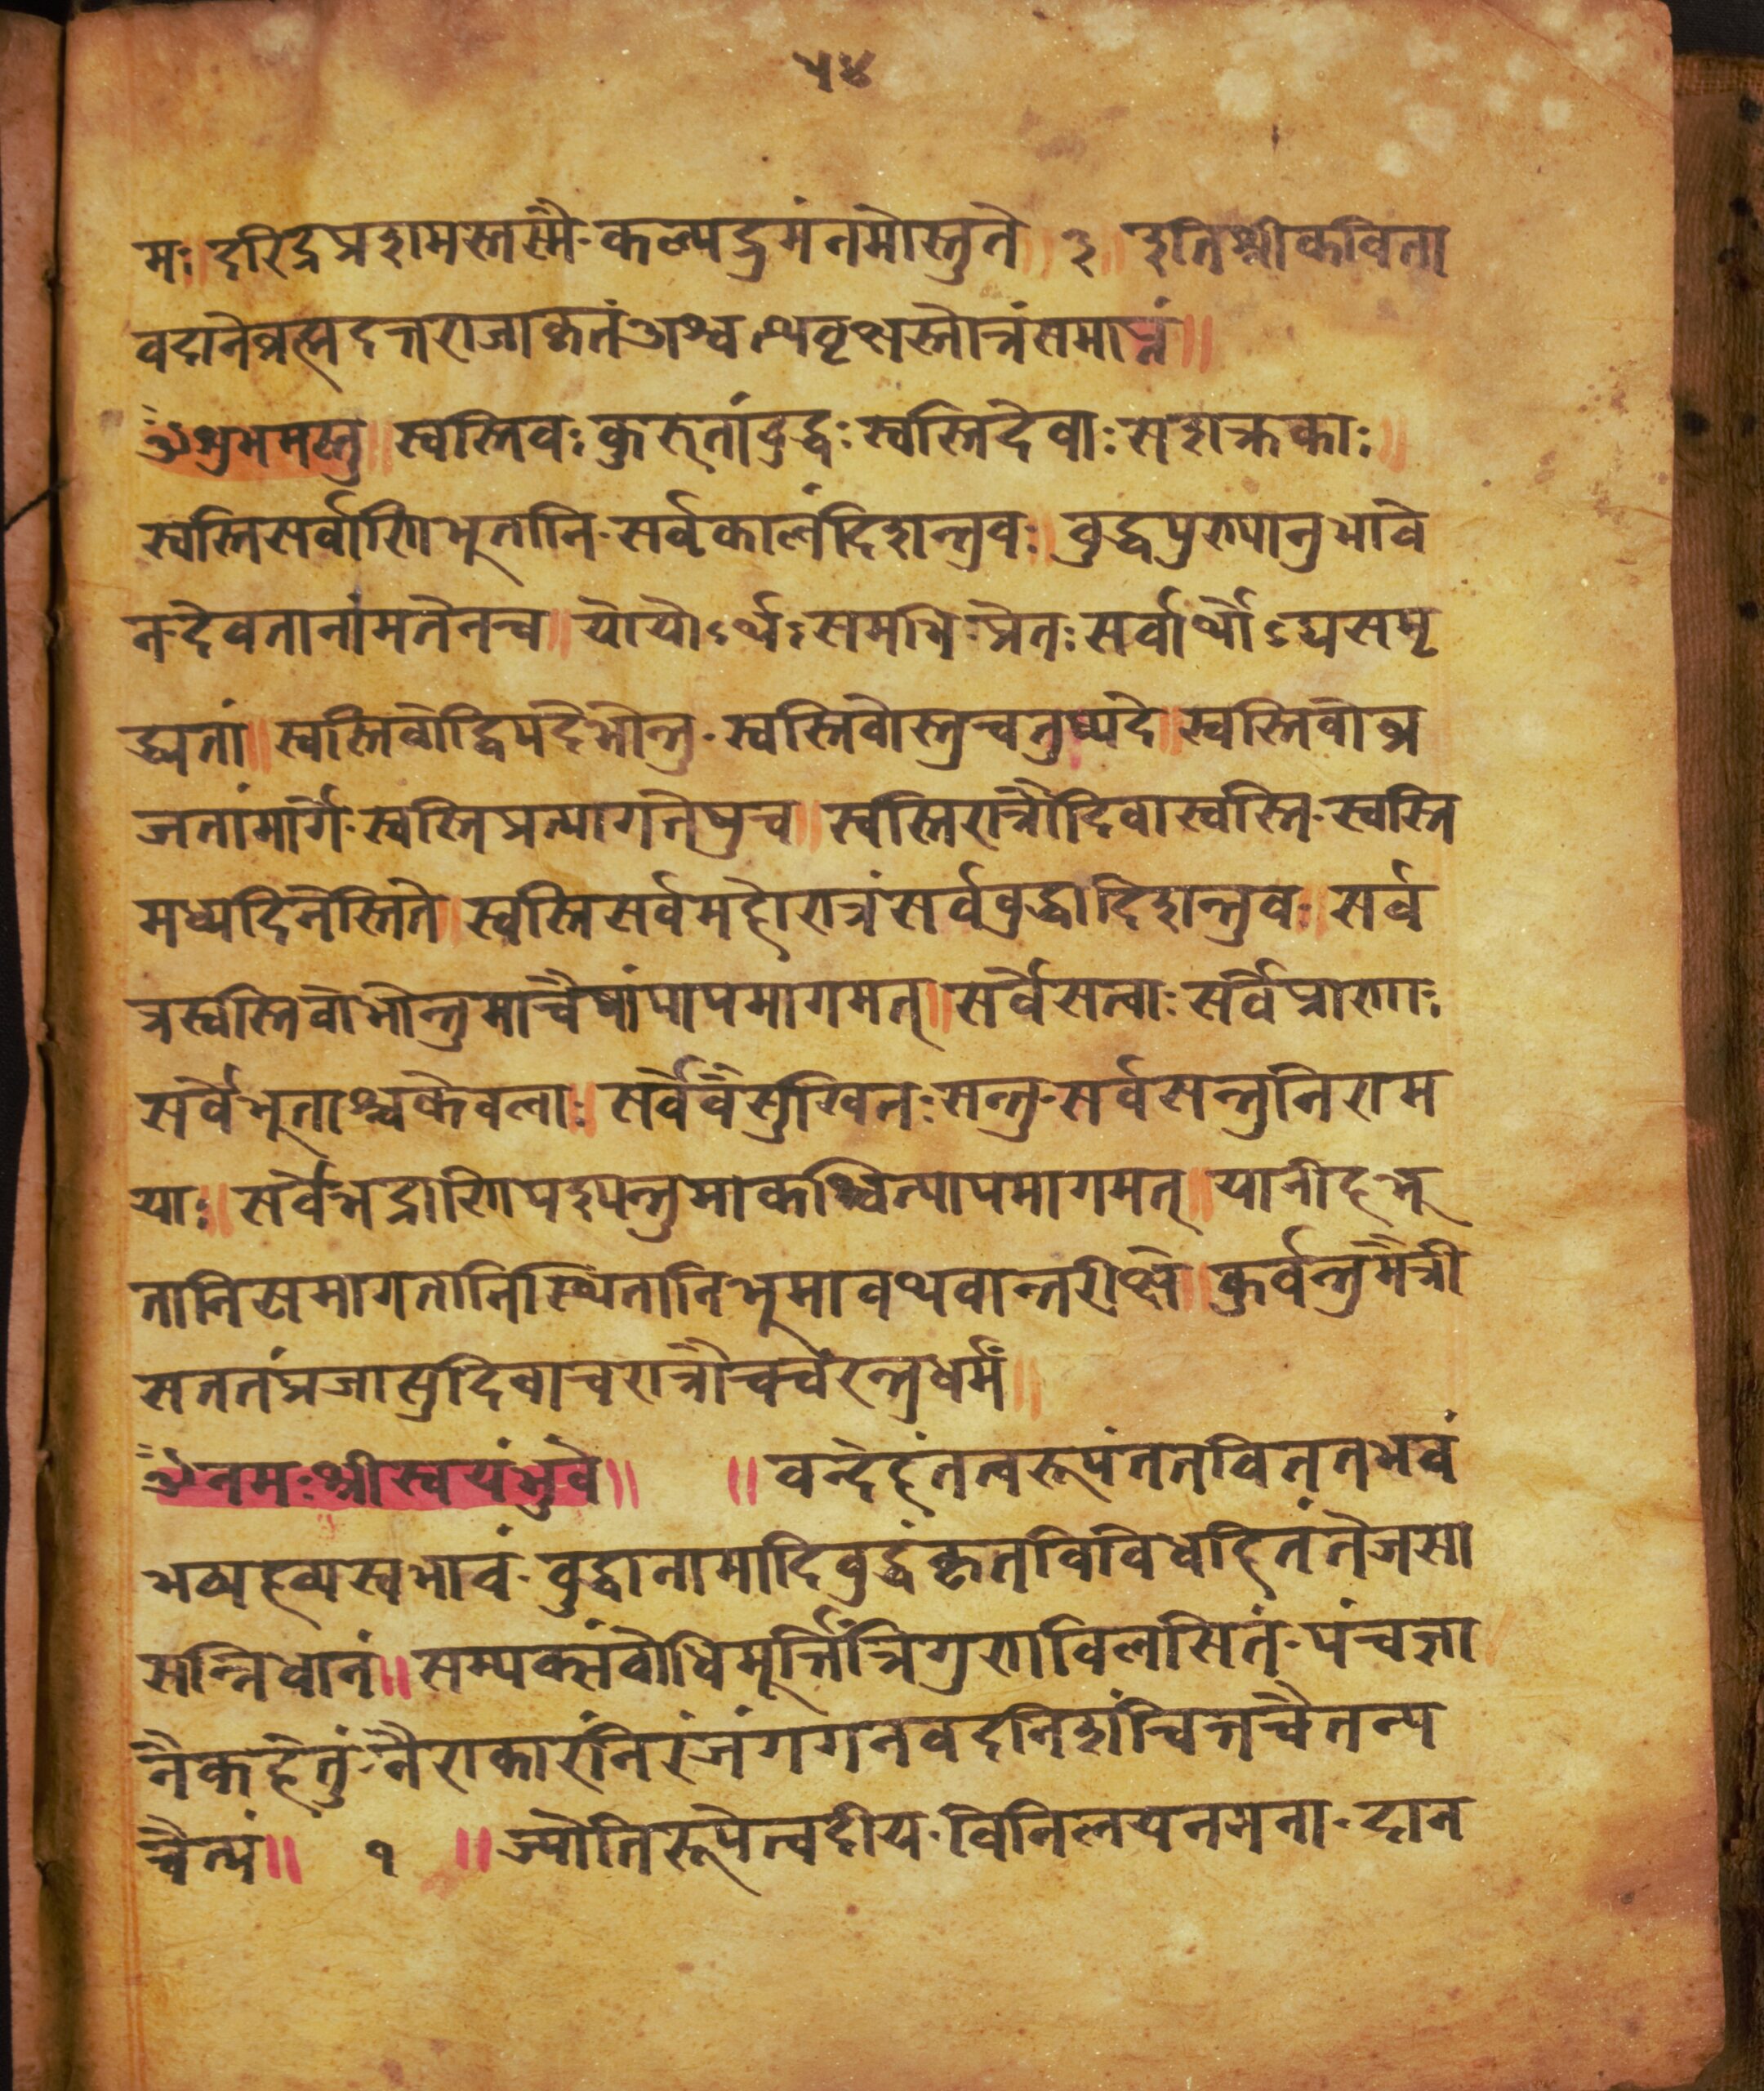 ५४
मः॥ दरिद्रप्रशमस्तस्मै·कल्पद्रुमंनमोस्तुते॥ ३॥ इतिश्रीकविता
वदानेब्रह्मदत्तराजाकृतंअश्वत्थवृक्षस्तोत्रंसमाप्तं॥
ॐशुभमस्तु॥ स्वस्तिवः कुरूतांबुद्धः स्वस्तिदेवाः सेशक्रकाः॥
स्वस्तिसर्वाणिभूतानि·सर्वकालंदिशन्तुवः॥ बुद्धपुण्यानुभावे
न·देवतानांमतेनच॥ योयोऽर्थः समभिप्रेतः सर्वार्थोऽद्यसमृ
द्ध्यतां॥ स्वस्तिवोद्विपदेभोन्तु·स्वस्तिवोस्तुचतुष्पदे॥ स्वस्तिवोव्र
जतांमार्गे·स्वस्तिप्रत्यागतेषुच॥ स्वस्तिरात्रौदिवास्वस्ति·स्वस्ति
मध्यदिनेस्तिते॥ स्वस्तिसर्वमहोरात्रंसर्वबुद्धादिशन्तुवः॥ सर्व
त्रस्वस्तिवोभोन्तुमाचैषांपापमागमत्॥ सर्वेसत्वाः सर्वेप्राणाः
सर्वेभूताश्चकेवलाः॥ सर्वेवैसुखिनः सन्तु·सर्वसन्तुनिराम
याः॥ सर्वेभद्राणिपश्यन्तुमाकश्चित्पापमागमत्॥ यानीहभू
तानिसमागतानिस्थितानिभूमावथवान्तरीक्षे॥ कुर्वन्तुमैत्री
सततंप्रजासुदिवाचरात्रौचचरन्तुधर्मं॥
ॐनमः श्रीस्वयंभुवे॥ ॥ वन्देहंतत्वरूपंततविततभवं
भव्यहव्यस्वभावं·बुद्धानामादिबुद्धंकृतविविधहितंतेजसो
सन्निधानं॥ सम्यक्संबोधिमूर्त्तिंत्रिगुणविलसितं·पंचज्ञा
नैकहेतुं·नैराकारंनिरंजंगगनवदनिशंचित्तचैतन्य
चैत्यं॥ १ ॥ ज्योतिरूपेत्वदीय·विनिलयनमना·दान